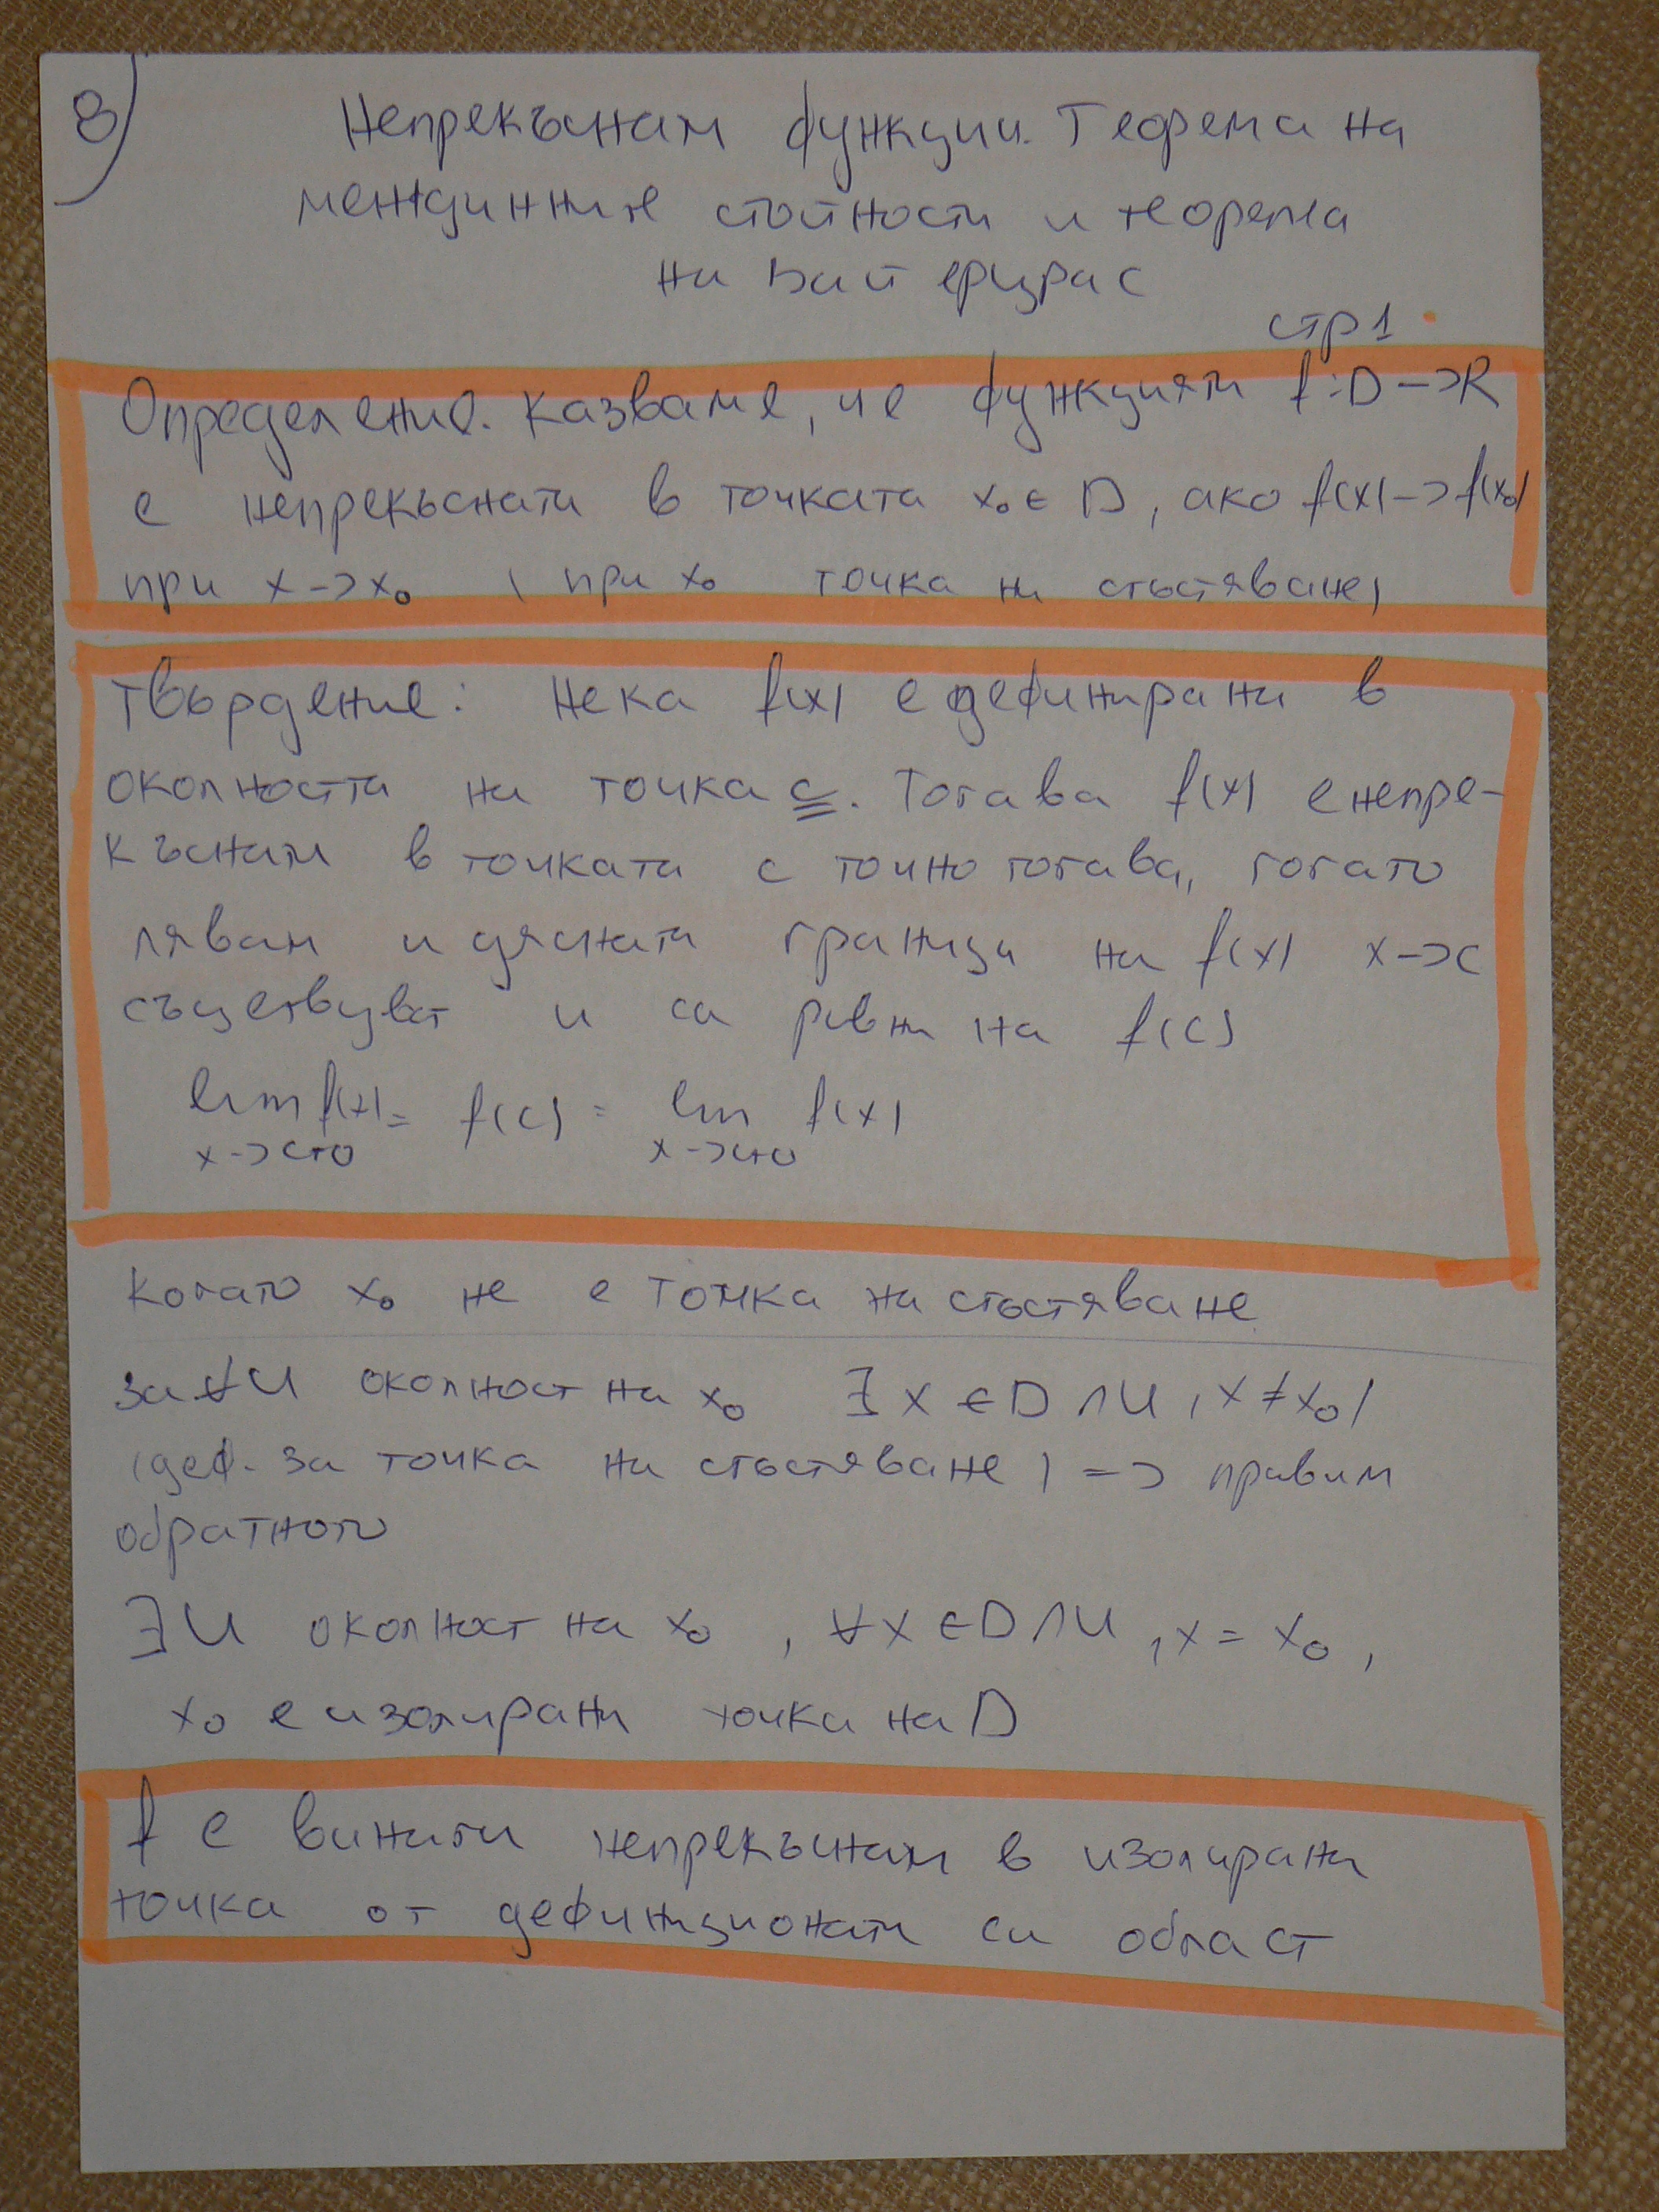 8)
Непрекъснати функции. Теорема на
междинните стойности и теорема
на Вайерщрас
стр 1
Определение. Казваме, че функцията f: D -> R
е непрекъсната в точката x₀ ∈ D, ако f(x) -> f(x₀)
при x -> x₀ ( при x₀ точка на сгъстяване)
Твърдение: Нека f(x) е дефинирана в
околността на точка c. Тогава f(x) е непре-
късната в точката c точно тогава, когато
лявата и дясната граници на f(x) x -> c
съществуват и са равни на f(c)
lim f(x) = f(c) = lim f(x)
x -> c+0 x -> c+0
Когато x₀ не е точка на сгъстяване
за ∀ U околност на x₀ ∃ x ∈ D ∩ U, x ≠ x₀)
(деф. за точка на сгъстяване) => правим
обратното
∃ U околност на x₀, ∀ x ∈ D ∩ U, x = x₀,
x₀ е изолирана точка на D
f е винаги непрекъсната в изолирана
точка от дефиниционата си област